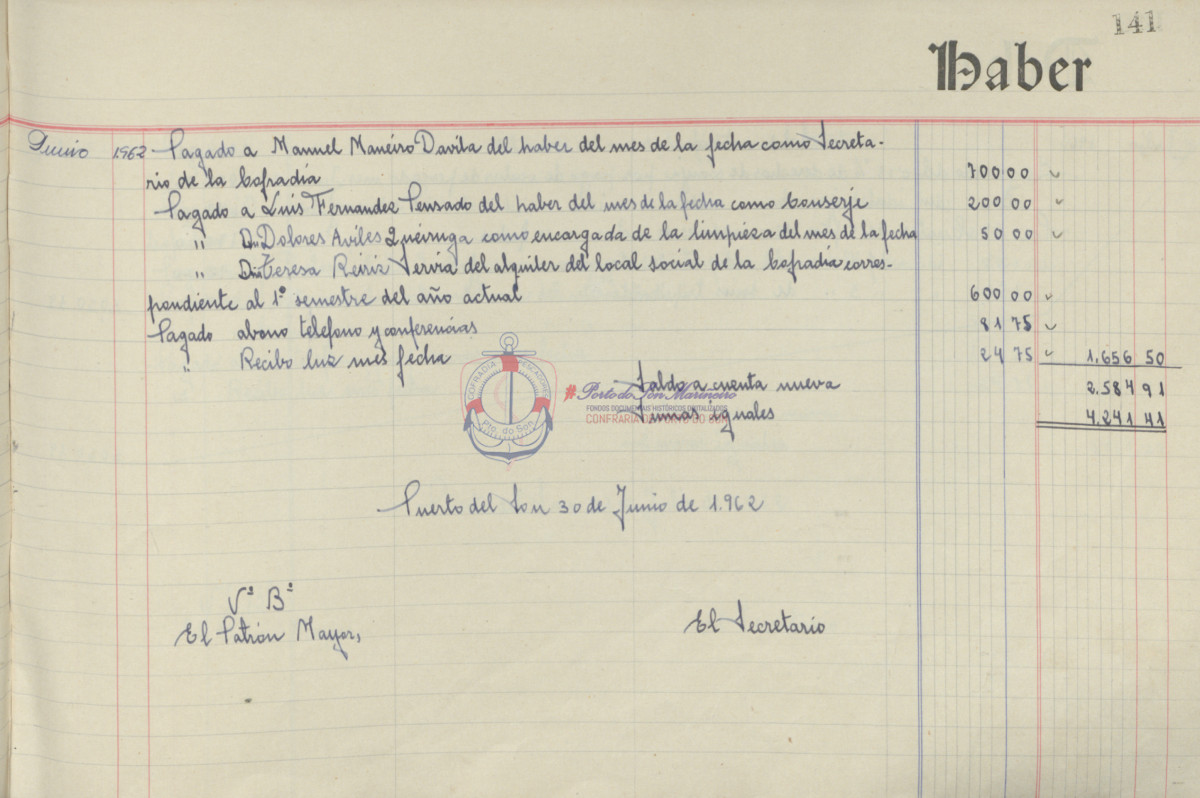 141
Haber
Junio 1962 Pagado a Manuel Maneiro Davila del haber del mes de la fecha como Secreta-
rio de la Cofradía 700 00
Pagado a Luis Fernandez Pensado del haber del mes de la fecha como Conserje 200 00
" Dña Dolores Aviles Queiruga como encargada de la limpieza del mes de la fecha 50 00
" Dña Teresa Reiriz Servia del alquiler del local social de la Cofradía corres-
pondiente al 1º semestre del año actual 600 00
Pagado abono telefono y conferencias 81 75
" Recibo luz mes fecha 24 75 1.656 50
Saldo a cuenta nueva 2.584 91
Sumas iguales 4.241 41
COFRADIA PESCADORES
Pto. do Son
#Porto do Son Mariñeiro
FONDOS DOCUMENTAIS HISTÓRICOS DIXITALIZADOS
CONFRARÍA DE PORTO DO SON
Puerto del Son 30 de Junio de 1.962
Vº Bº
El Patrón Mayor,
El Secretario